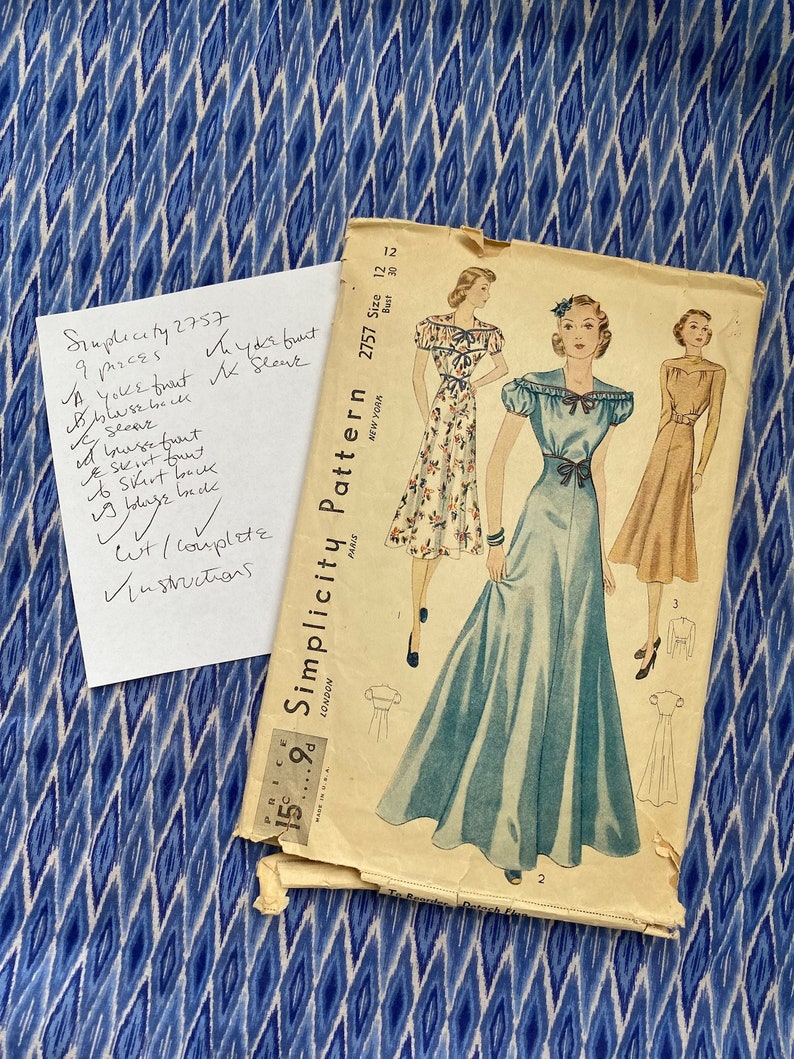 Simplicity 2757
9 pieces
✓ A yoke front
✓ B blouse back
✓ C Sleeve
✓ D blouse front
✓ E Skirt front
✓ f Skirt back
✓ g blouse back
✓ h yoke front
✓ K Sleeve
✓ ✓ ✓
cut / complete
✓ Instructions
Simplicity Pattern
LONDON
PARIS
NEW YORK
2757 Size 12
Bust 30
12
PRICE
15c....9d
MADE IN U.S.A.
1
2
3
To Reorder Detach Flap